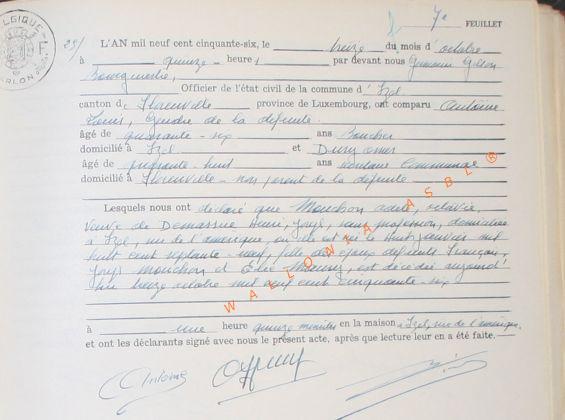 7e FEUILLET
29/ L'AN mil neuf cent cinquante-six, le treize du mois d'octobre
à quinze heures par devant nous
Bourgmestre,
Officier de l'état civil de la commune d'Izel
canton de Florenville province de Luxembourg, ont comparu Antoine
Louis, gendre de la défunte.
âgé de quarante-six ans Boucher
domicilié à Izel et
âgé de ans Communal
domicilié à Florenville - non parent de la défunte
Lesquels nous ont déclaré que Mouchon Adèle,
Veuve de Demassue Henri, sans profession, domiciliée
à Izel, rue de l'amérique, où elle est née le Huit janvier mil
huit cent septante-neuf, fille des époux défunts François,
Mouchon et est décédée aujourd'
hui treize octobre mil neuf cent cinquante-six
à une heure quinze minutes en la maison à Izel, rue de l'amérique,
et ont les déclarants signé avec nous le présent acte, après que lecture leur en a été faite.
Antoine
WALLONIA ASBL®